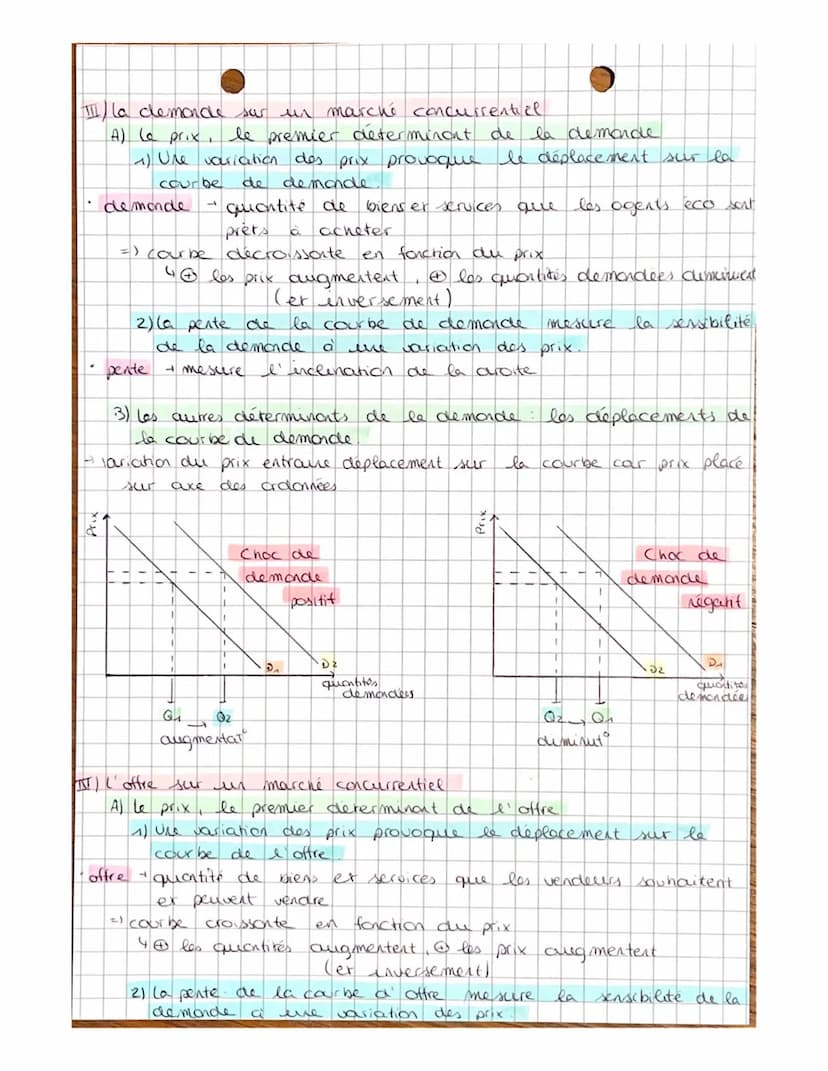 III) La demande sur un marché concurrentiel
A) Le prix, le premier déterminant de la demande
1) Une variation des prix provoque le déplacement sur la
courbe de demande.
• demande → quantité de biens et services que les agents éco sont
prêts à acheter
=> courbe décroissante en fonction du prix
↳ ⊕ les prix augmentent, ⊕ les quantités demandées diminuent
(et inversement)
2) La pente de la courbe de demande mesure la sensibilité
de la demande à une variation des prix.
• pente → mesure l'inclination de la droite
3) Les autres déterminants de la demande : les déplacements de
la courbe de demande.
→ variation du prix entraine déplacement sur la courbe car prix placé
sur axe des ordonnées
Prix
Choc de
demande
positif
D1
D2
quantités
demandées
Q1 → Q2
augmentat°
Prix
Choc de
demande
négatif
D2
D1
quantités
demandées
Q2 → Q1
diminut°
IV) L'offre sur un marché concurrentiel
A) Le prix, le premier determinant de l'offre
1) Une variation des prix provoque le déplacement sur la
courbe de l'offre.
• offre → quantité de biens et services que les vendeurs souhaitent
et peuvent vendre
=> courbe croissante en fonction du prix
↳ ⊕ les quantités augmentent, ⊕ les prix augmentent
(et inversement)
2) La pente de la courbe d'offre mesure la sensibilité de la
demande à une variation des prix.